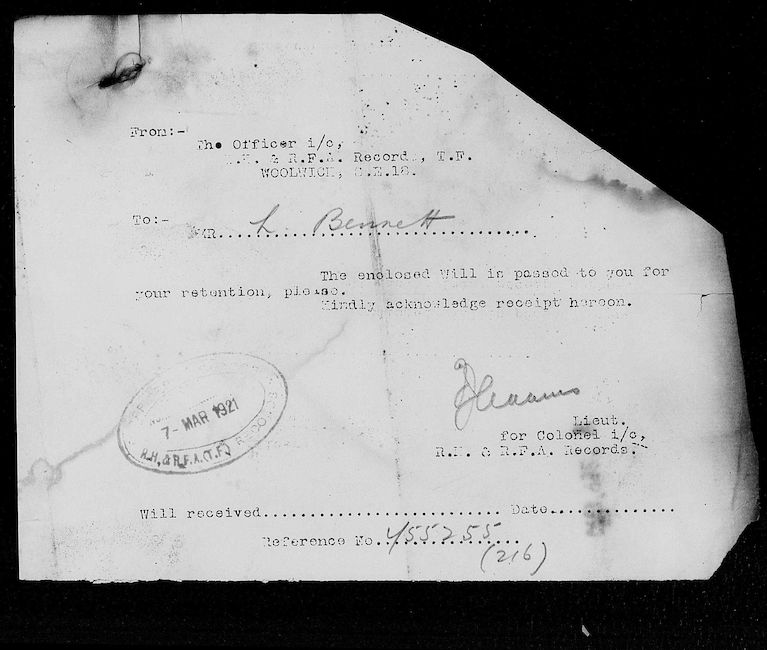 From:-
The Officer i/c,
R.H. & R.F.A. Records, T.F.
WOOLWICH, S.E.18.
To:-
MR.... L. Bennett ..........
The enclosed Will is passed to you for
your retention, please.
Kindly acknowledge receipt hereon.
Lieut.
for Colonel i/c,
R.H. & R.F.A. Records.
7- MAR 1921
R.H. & R.F.A. (T.F.) RECORDS
Will received............................ Date...............
Reference No. 455255
(216)